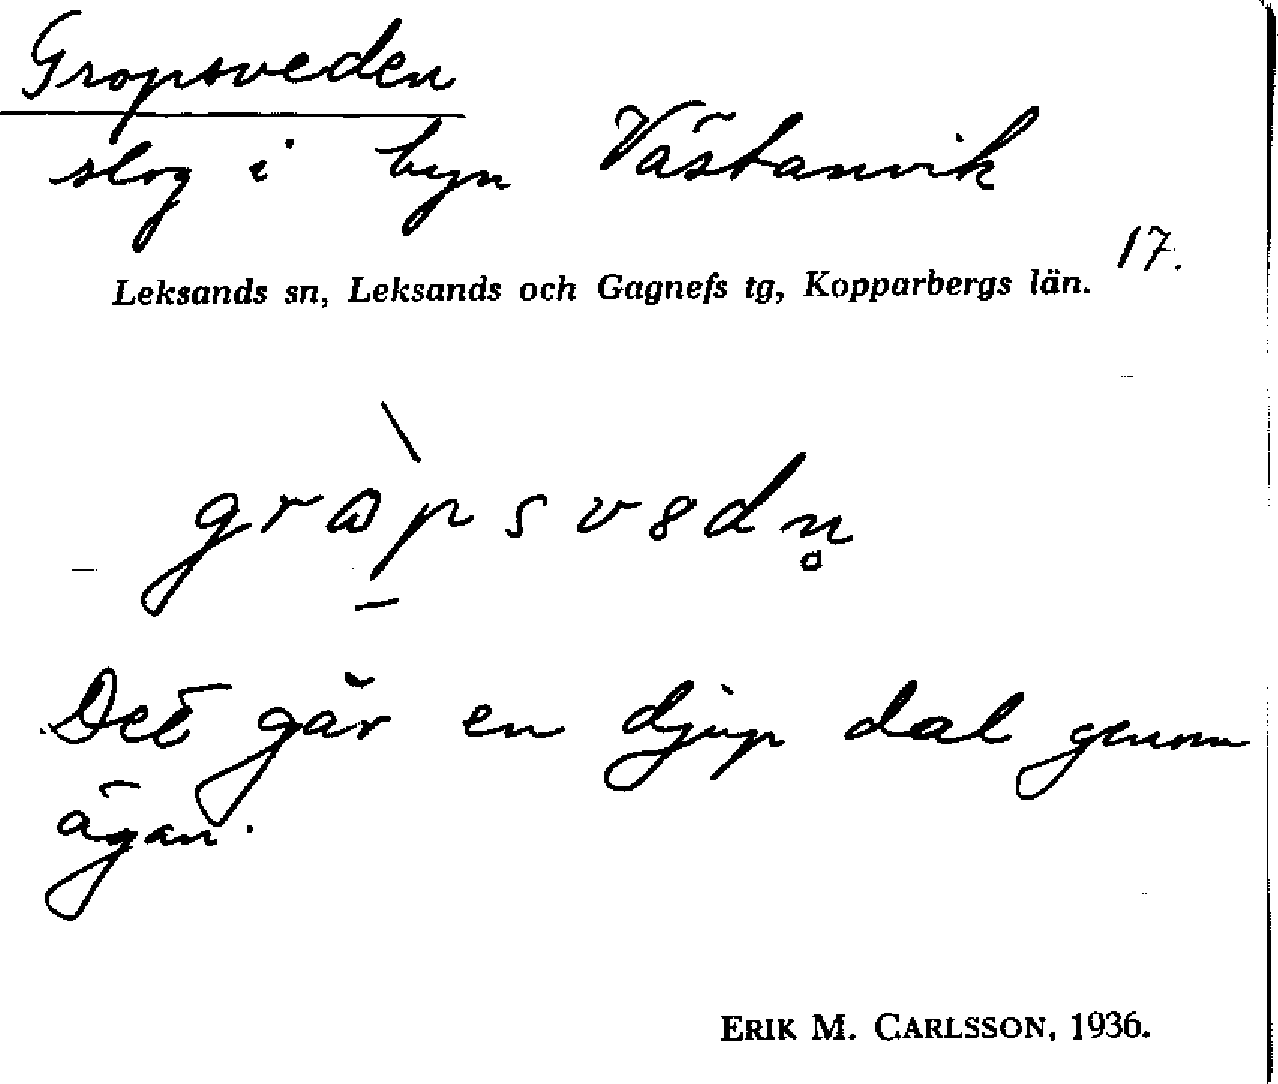 Gropsveden
slog i byn Västanvik
17.
Leksands sn, Leksands och Gagnefs tg, Kopparbergs län.
Det går en djup dal genom
ägan.
ERIK M. CARLSSON, 1936.